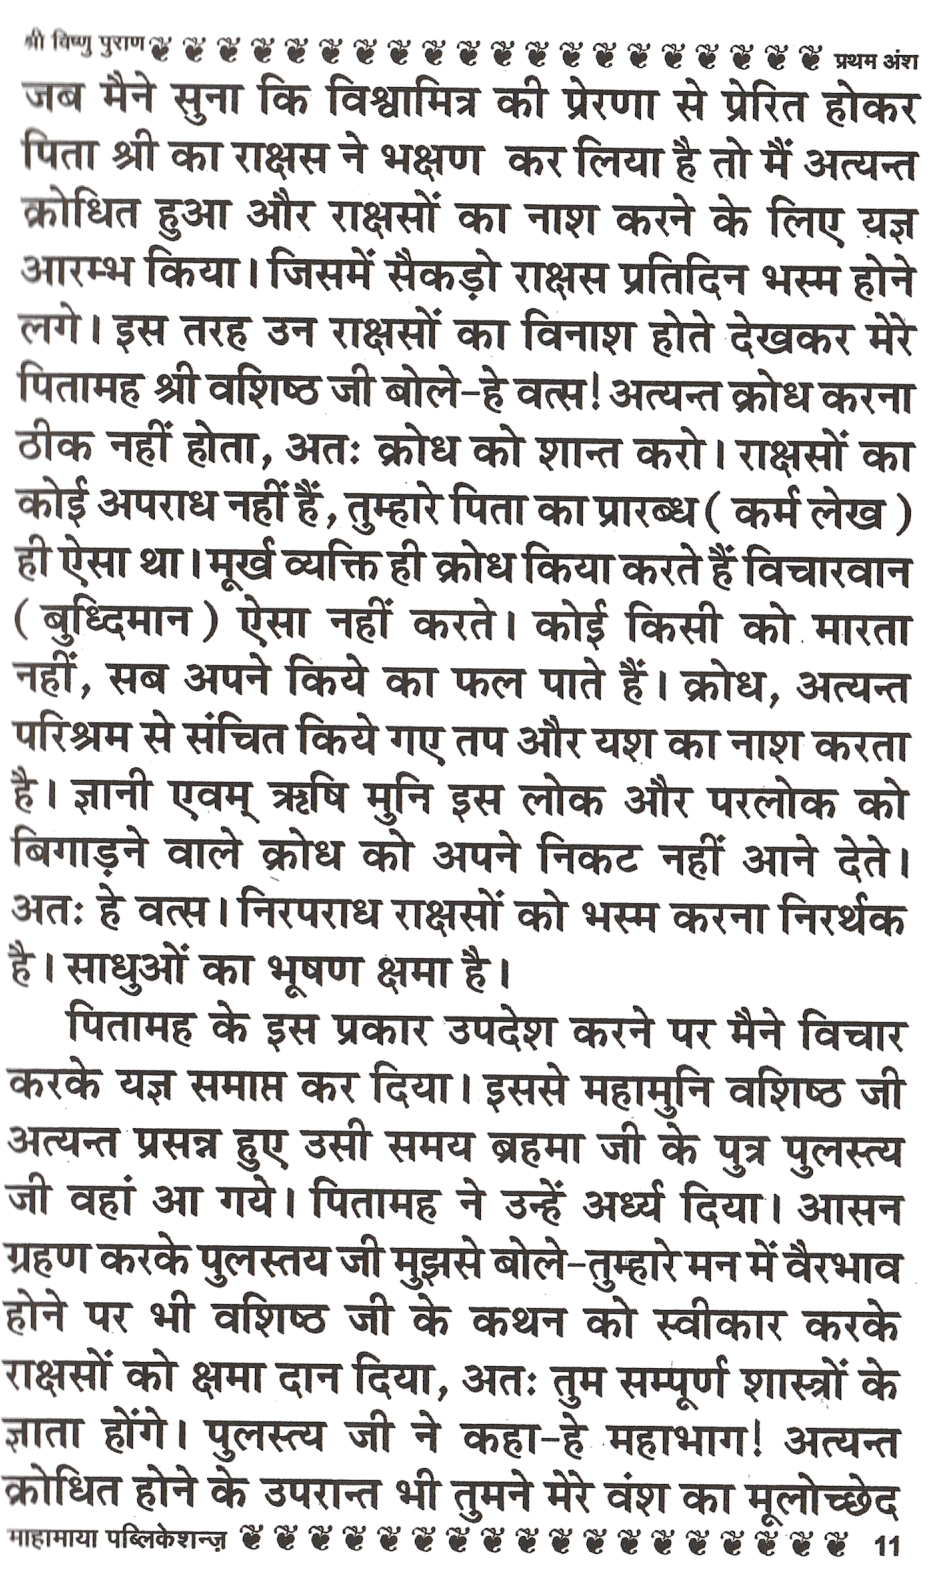 श्री विष्णु पुराण
प्रथम अंश
जब मैने सुना कि विश्वामित्र की प्रेरणा से प्रेरित होकर
पिता श्री का राक्षस ने भक्षण कर लिया है तो मैं अत्यन्त
क्रोधित हुआ और राक्षसों का नाश करने के लिए यज्ञ
आरम्भ किया। जिसमें सैकड़ो राक्षस प्रतिदिन भस्म होने
लगे। इस तरह उन राक्षसों का विनाश होते देखकर मेरे
पितामह श्री वशिष्ठ जी बोले-हे वत्स! अत्यन्त क्रोध करना
ठीक नहीं होता, अतः क्रोध को शान्त करो। राक्षसों का
कोई अपराध नहीं हैं, तुम्हारे पिता का प्रारब्ध ( कर्म लेख )
ही ऐसा था। मूर्ख व्यक्ति ही क्रोध किया करते हैं विचारवान
( बुध्दिमान ) ऐसा नहीं करते। कोई किसी को मारता
नहीं, सब अपने किये का फल पाते हैं। क्रोध, अत्यन्त
परिश्रम से संचित किये गए तप और यश का नाश करता
है। ज्ञानी एवम् ऋषि मुनि इस लोक और परलोक को
बिगाड़ने वाले क्रोध को अपने निकट नहीं आने देते।
अतः हे वत्स। निरपराध राक्षसों को भस्म करना निरर्थक
है। साधुओं का भूषण क्षमा है।
पितामह के इस प्रकार उपदेश करने पर मैने विचार
करके यज्ञ समाप्त कर दिया। इससे महामुनि वशिष्ठ जी
अत्यन्त प्रसन्न हुए उसी समय ब्रहमा जी के पुत्र पुलस्त्य
जी वहां आ गये। पितामह ने उन्हें अर्ध्य दिया। आसन
ग्रहण करके पुलस्तय जी मुझसे बोले-तुम्हारे मन में वैरभाव
होने पर भी वशिष्ठ जी के कथन को स्वीकार करके
राक्षसों को क्षमा दान दिया, अतः तुम सम्पूर्ण शास्त्रों के
ज्ञाता होंगे। पुलस्त्य जी ने कहा-हे महाभाग! अत्यन्त
क्रोधित होने के उपरान्त भी तुमने मेरे वंश का मूलोच्छेद
माहामाया पब्लिकेशन्ज़
11